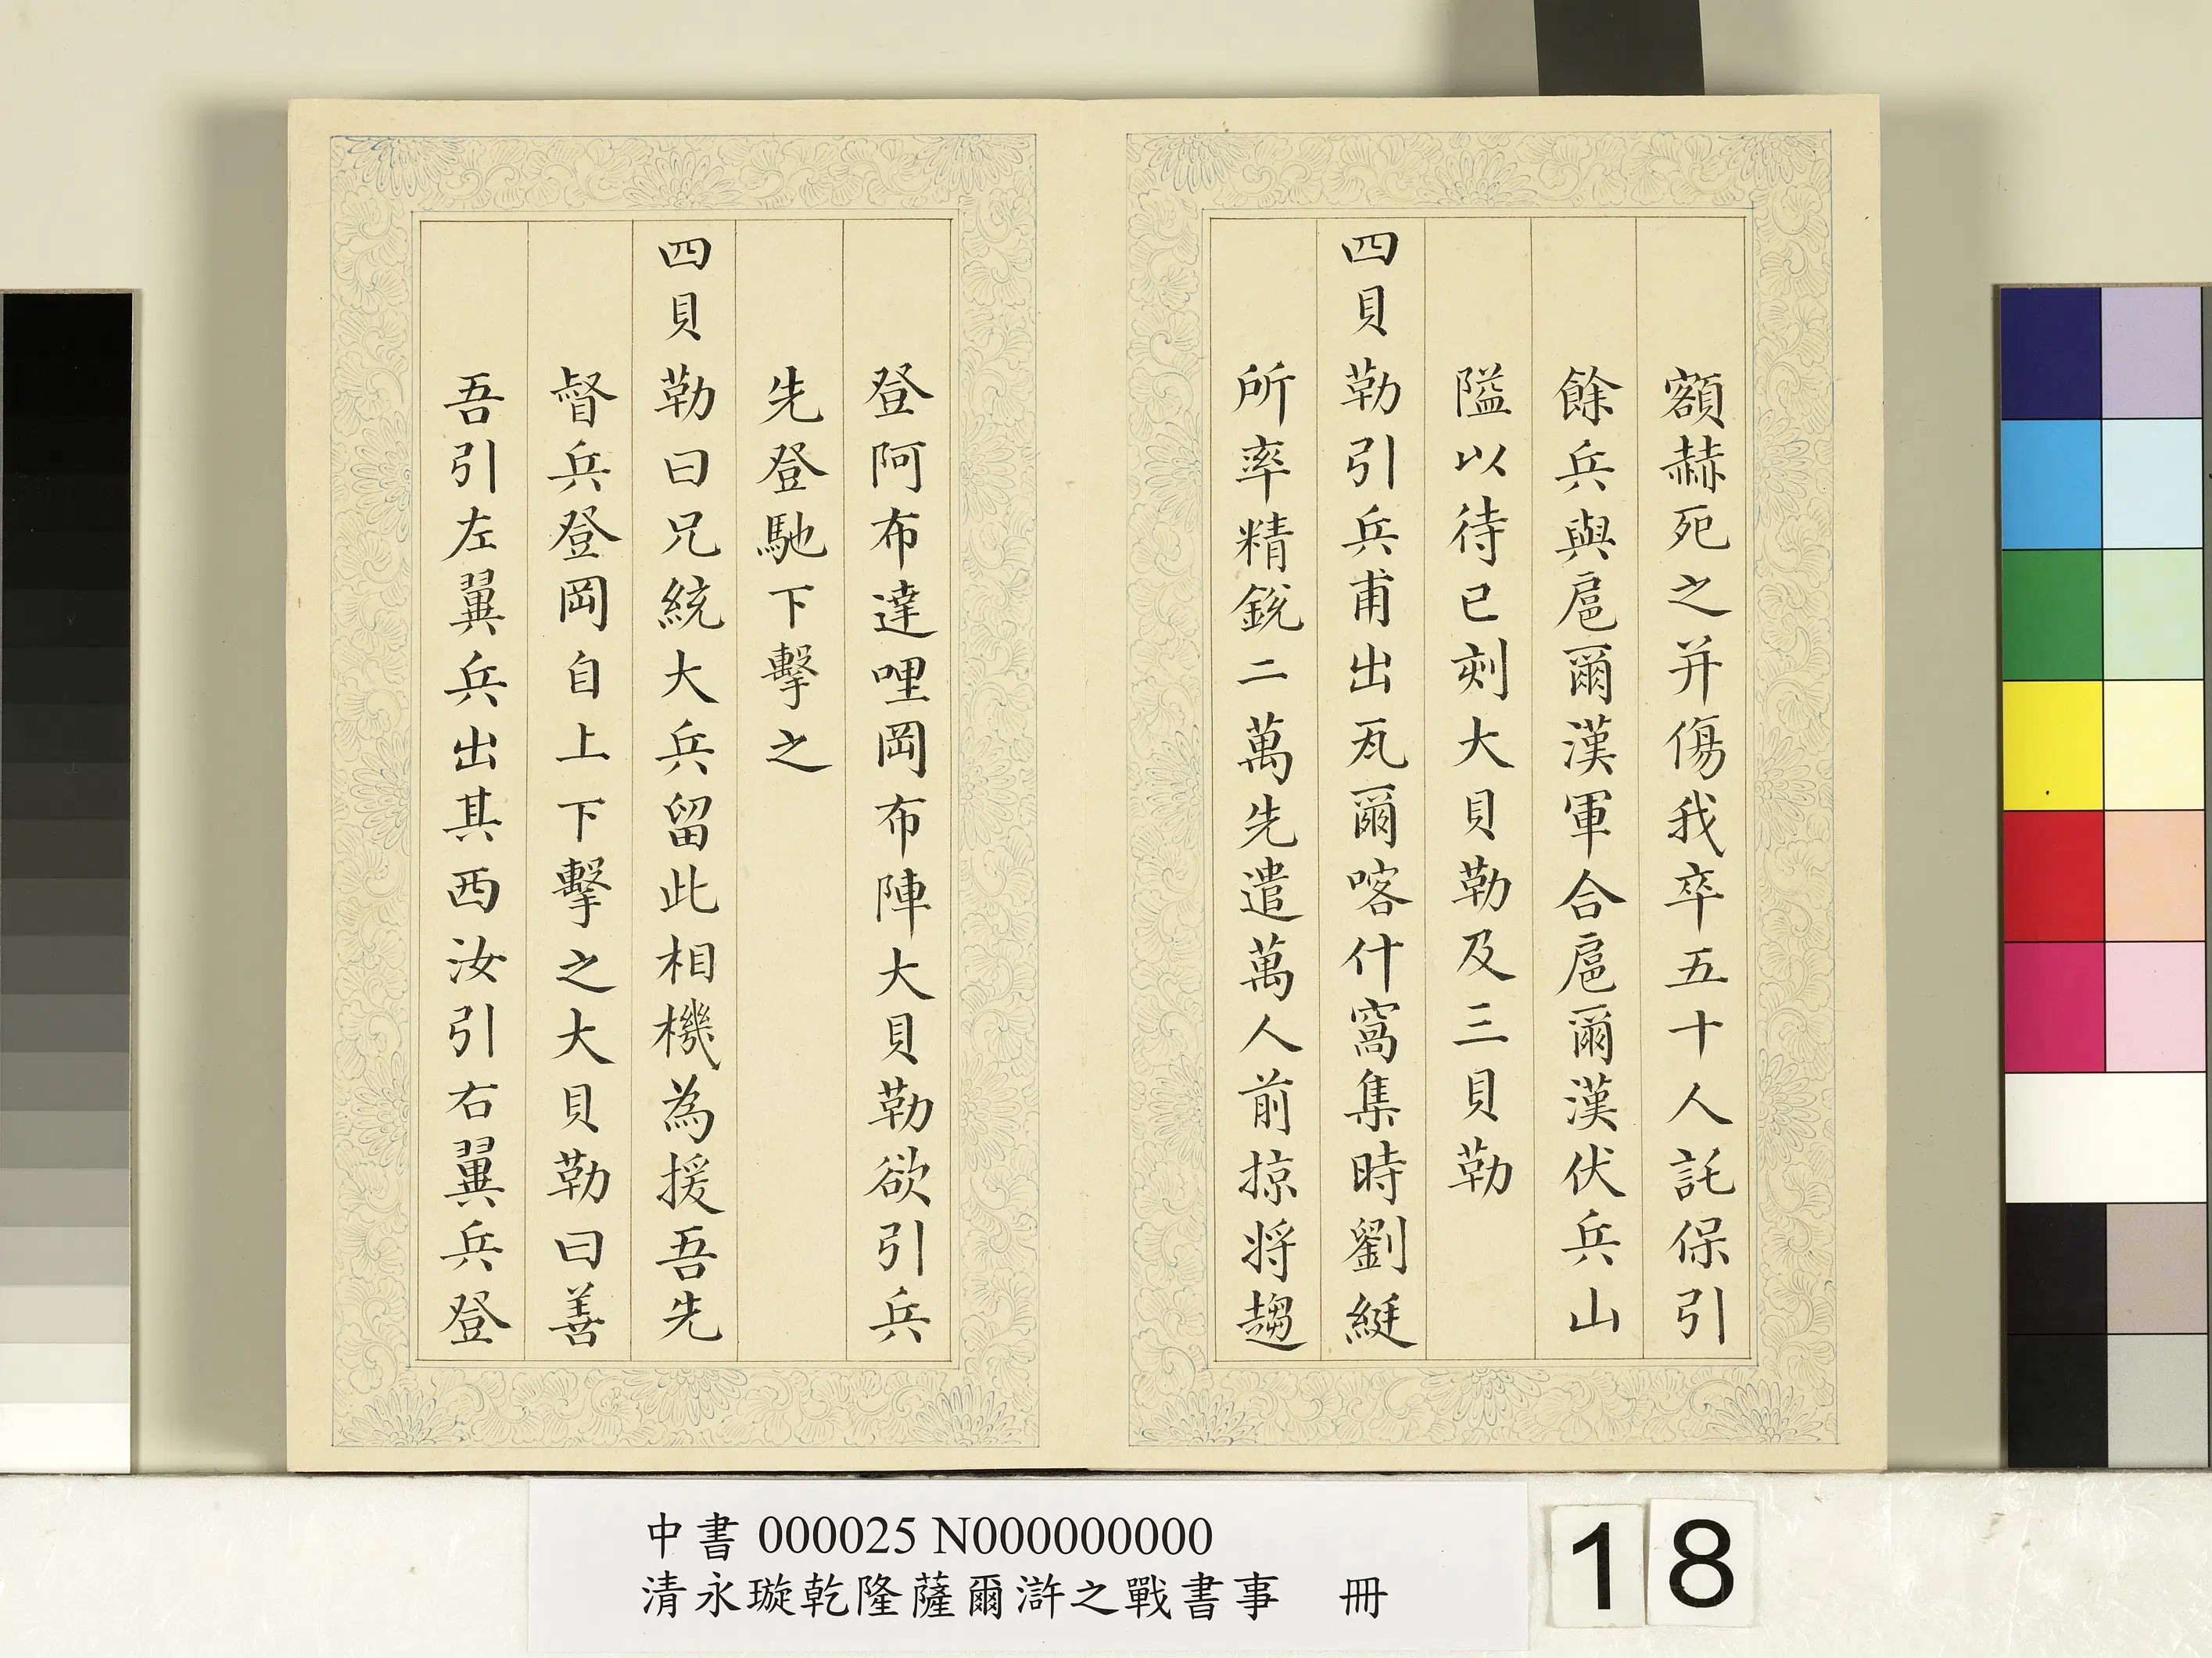 額赫死之并傷我卒五十人託保引
餘兵與扈爾漢軍合扈爾漢伏兵山
隘以待巳刻大貝勒及三貝勒
四貝勒引兵甫出瓦爾喀什窩集時劉綎
所率精銳二萬先遣萬人前掠將趨
登阿布達哩岡布陣大貝勒欲引兵
先登馳下擊之
四貝勒曰兄統大兵留此相機為援吾先
督兵登岡自上下擊之大貝勒曰善
吾引左翼兵出其西汝引右翼兵登
中書 000025 N000000000
清永璇乾隆薩爾滸之戰書事 冊
18